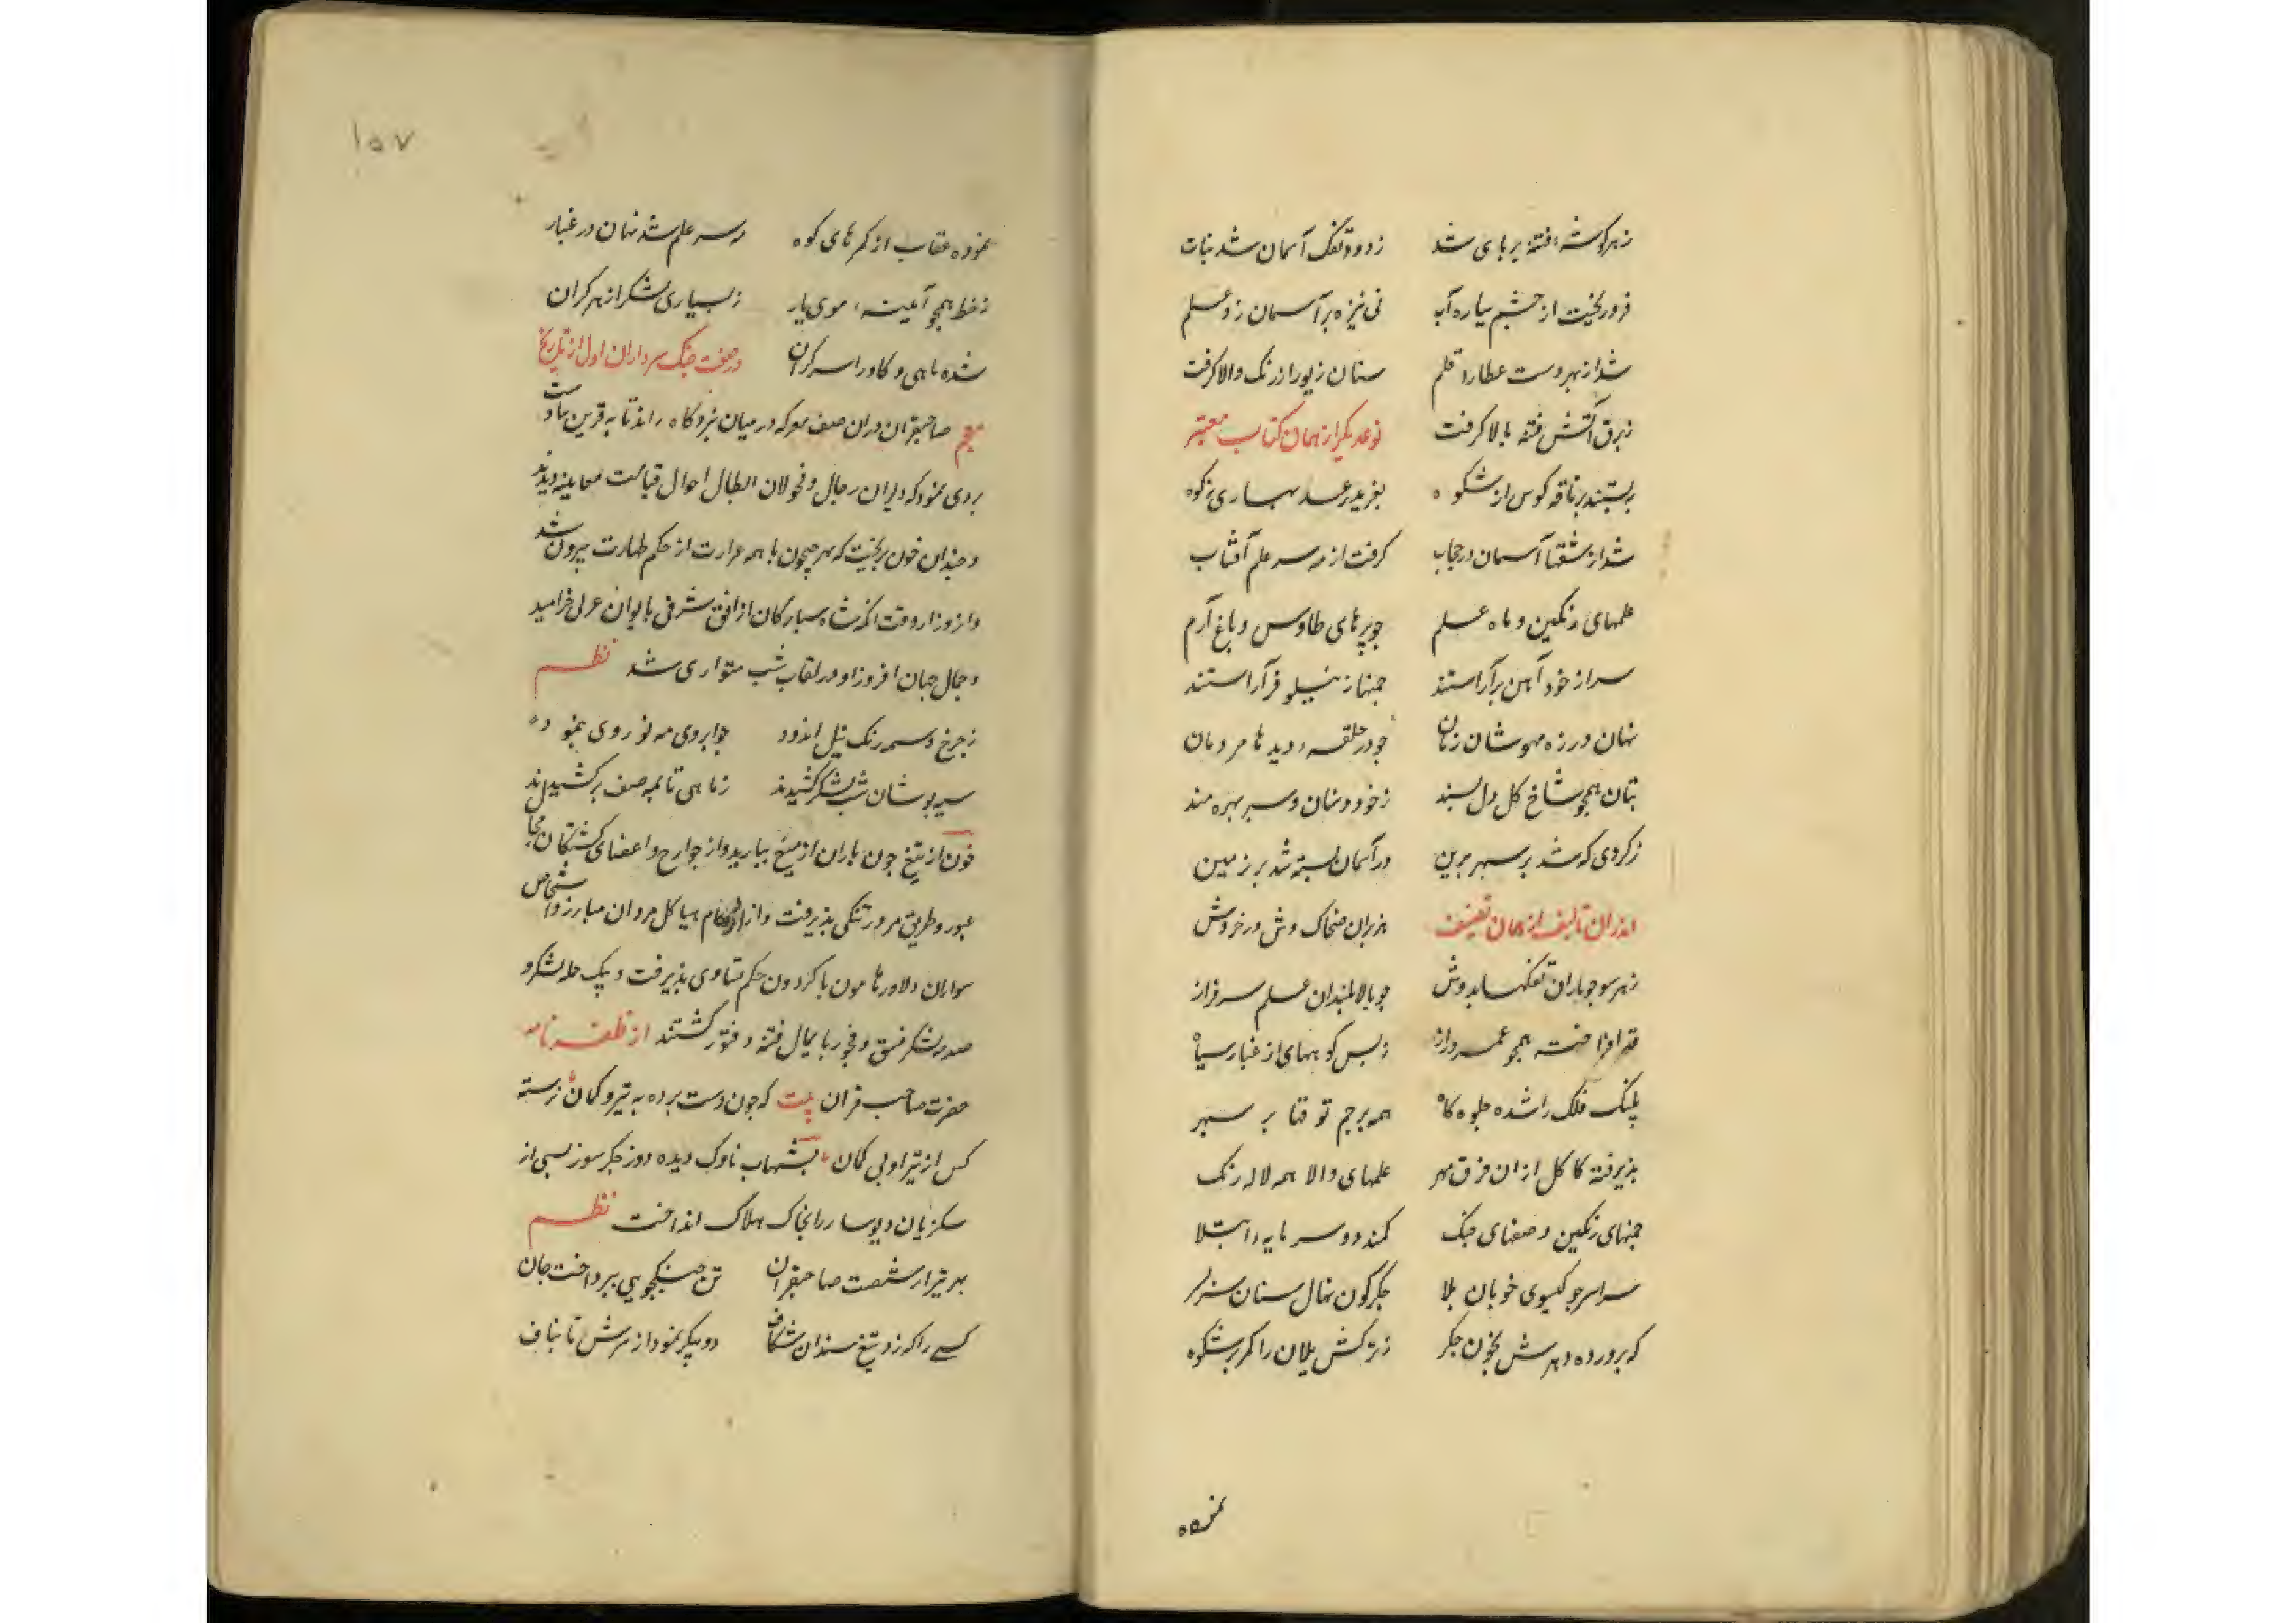 زهر کوشه فتنه بر پای شد زدود تفنک آسمان شد نبات
فرو ریخت از چشم سیاره آب نی نیزه بر آسمان زد علم
شد از بهر دست عطارد قلم سنان زیور از رنک والا کرفت
زبرق آتش فتنه بالا کرفت نوعدیکر از همان کتاب معتبر
ببستند بر ناقه کوس از شکوه بغرید رعد بهاری زکوه
شد از شقها آسمان در حجاب کرفت از مه سر علم آفتاب
علمهای رنکین و ماه علم چو پرهای طاوس و باغ ارم
سر از خود آهن بر آراستند
نهان در زره مهوشان زمان چو در حلقه دیدها مردمان
بتان همچو شاخ کل دل پسند زخود و سنان و سپر بهره مند
زکردی که شد بر سپهر برین در آسمان بسته شد بر زمین
اندران تالیف از همان تصنیف هزبران ضحاک وش در خروش
زهر سو چو ماران تفنکها بدوش چو بالا بلندان علم سرفراز
قد افراخته همچو عمر دراز زبس کوههای از غبار سیاه
پلنک فلک را شده جلوه کاه همه پرچم توقها بر سپهر
پذیرفته کاکل از ان فرق مهر علمهای والا همه لاله رنک
رنکین و صفهای جنک کمند دو سر مایه ابتلا
سراسر چو کیسوی خوبان بلا جکرکون نهال سنان سر بسر
که پرورده دهرش بخون جکر زترکش یلان را کمر پر شکوه
نموده
۱۵۷
نموده عقاب از کمرهای کوه مه سر علم شد نهان در غبار
زخط همچو آیینه روی یار زبسیاری لشکر از هر کران
شده ماهی و کاو را سر کران در صفت جنک سرداران اول از تاریخ
معجم صاحبقران در ان صف معرکه در میان نبردکاه راند تا به قرین
بردی نمود که دلیران رجال و فحولان ابطال احوال قیامت معاینه دیدند
و چندان خون بریخت که نهر جیحون با همه غزارت از حکم طهارت بیرون شد
و از و زار وقت انکه شاه سیارکان از افق شرقی با یوان غربی خرامید
و جمال جهان افروز او در نقاب شب متواری شد نظم
زچرخ وسمه رنک نیل اندود چو ابروی مه نو روی بنمود
سیه پوشان شب لشکر کشیدند زماهی تا بمه صف بر کشیدند
خون از تیغ چون باران از میغ ببارید و از جوارح و اعضای کشتکان
عبور و طریق مرور تنکی پذیرفت و از ازدحام هیاکل مردان مبارز و اشخاص
سواران دلاور هامون با کردون حکم تساوی پذیرفت و بیک حمله لشکر و
صدر لشکر فسق و فجور پایمال فتنه و فتور کشتند از ظفرنامه
حضرت صاحب قران بیت که چون دست برده به تیر و کمان نرسته
کس از تیر او بی کمان بشهاب ناوک دیده دوز جکر سوز بسی از
سکزیان دیوسار را بخاک هلاک انداخت نظم
بهر تیر از شصت صاحبقران تن جنکجویی بپرداخت جان
کسے را که زد تیغ سندان شکاف دو پیکر نمود از سرش تا بناف